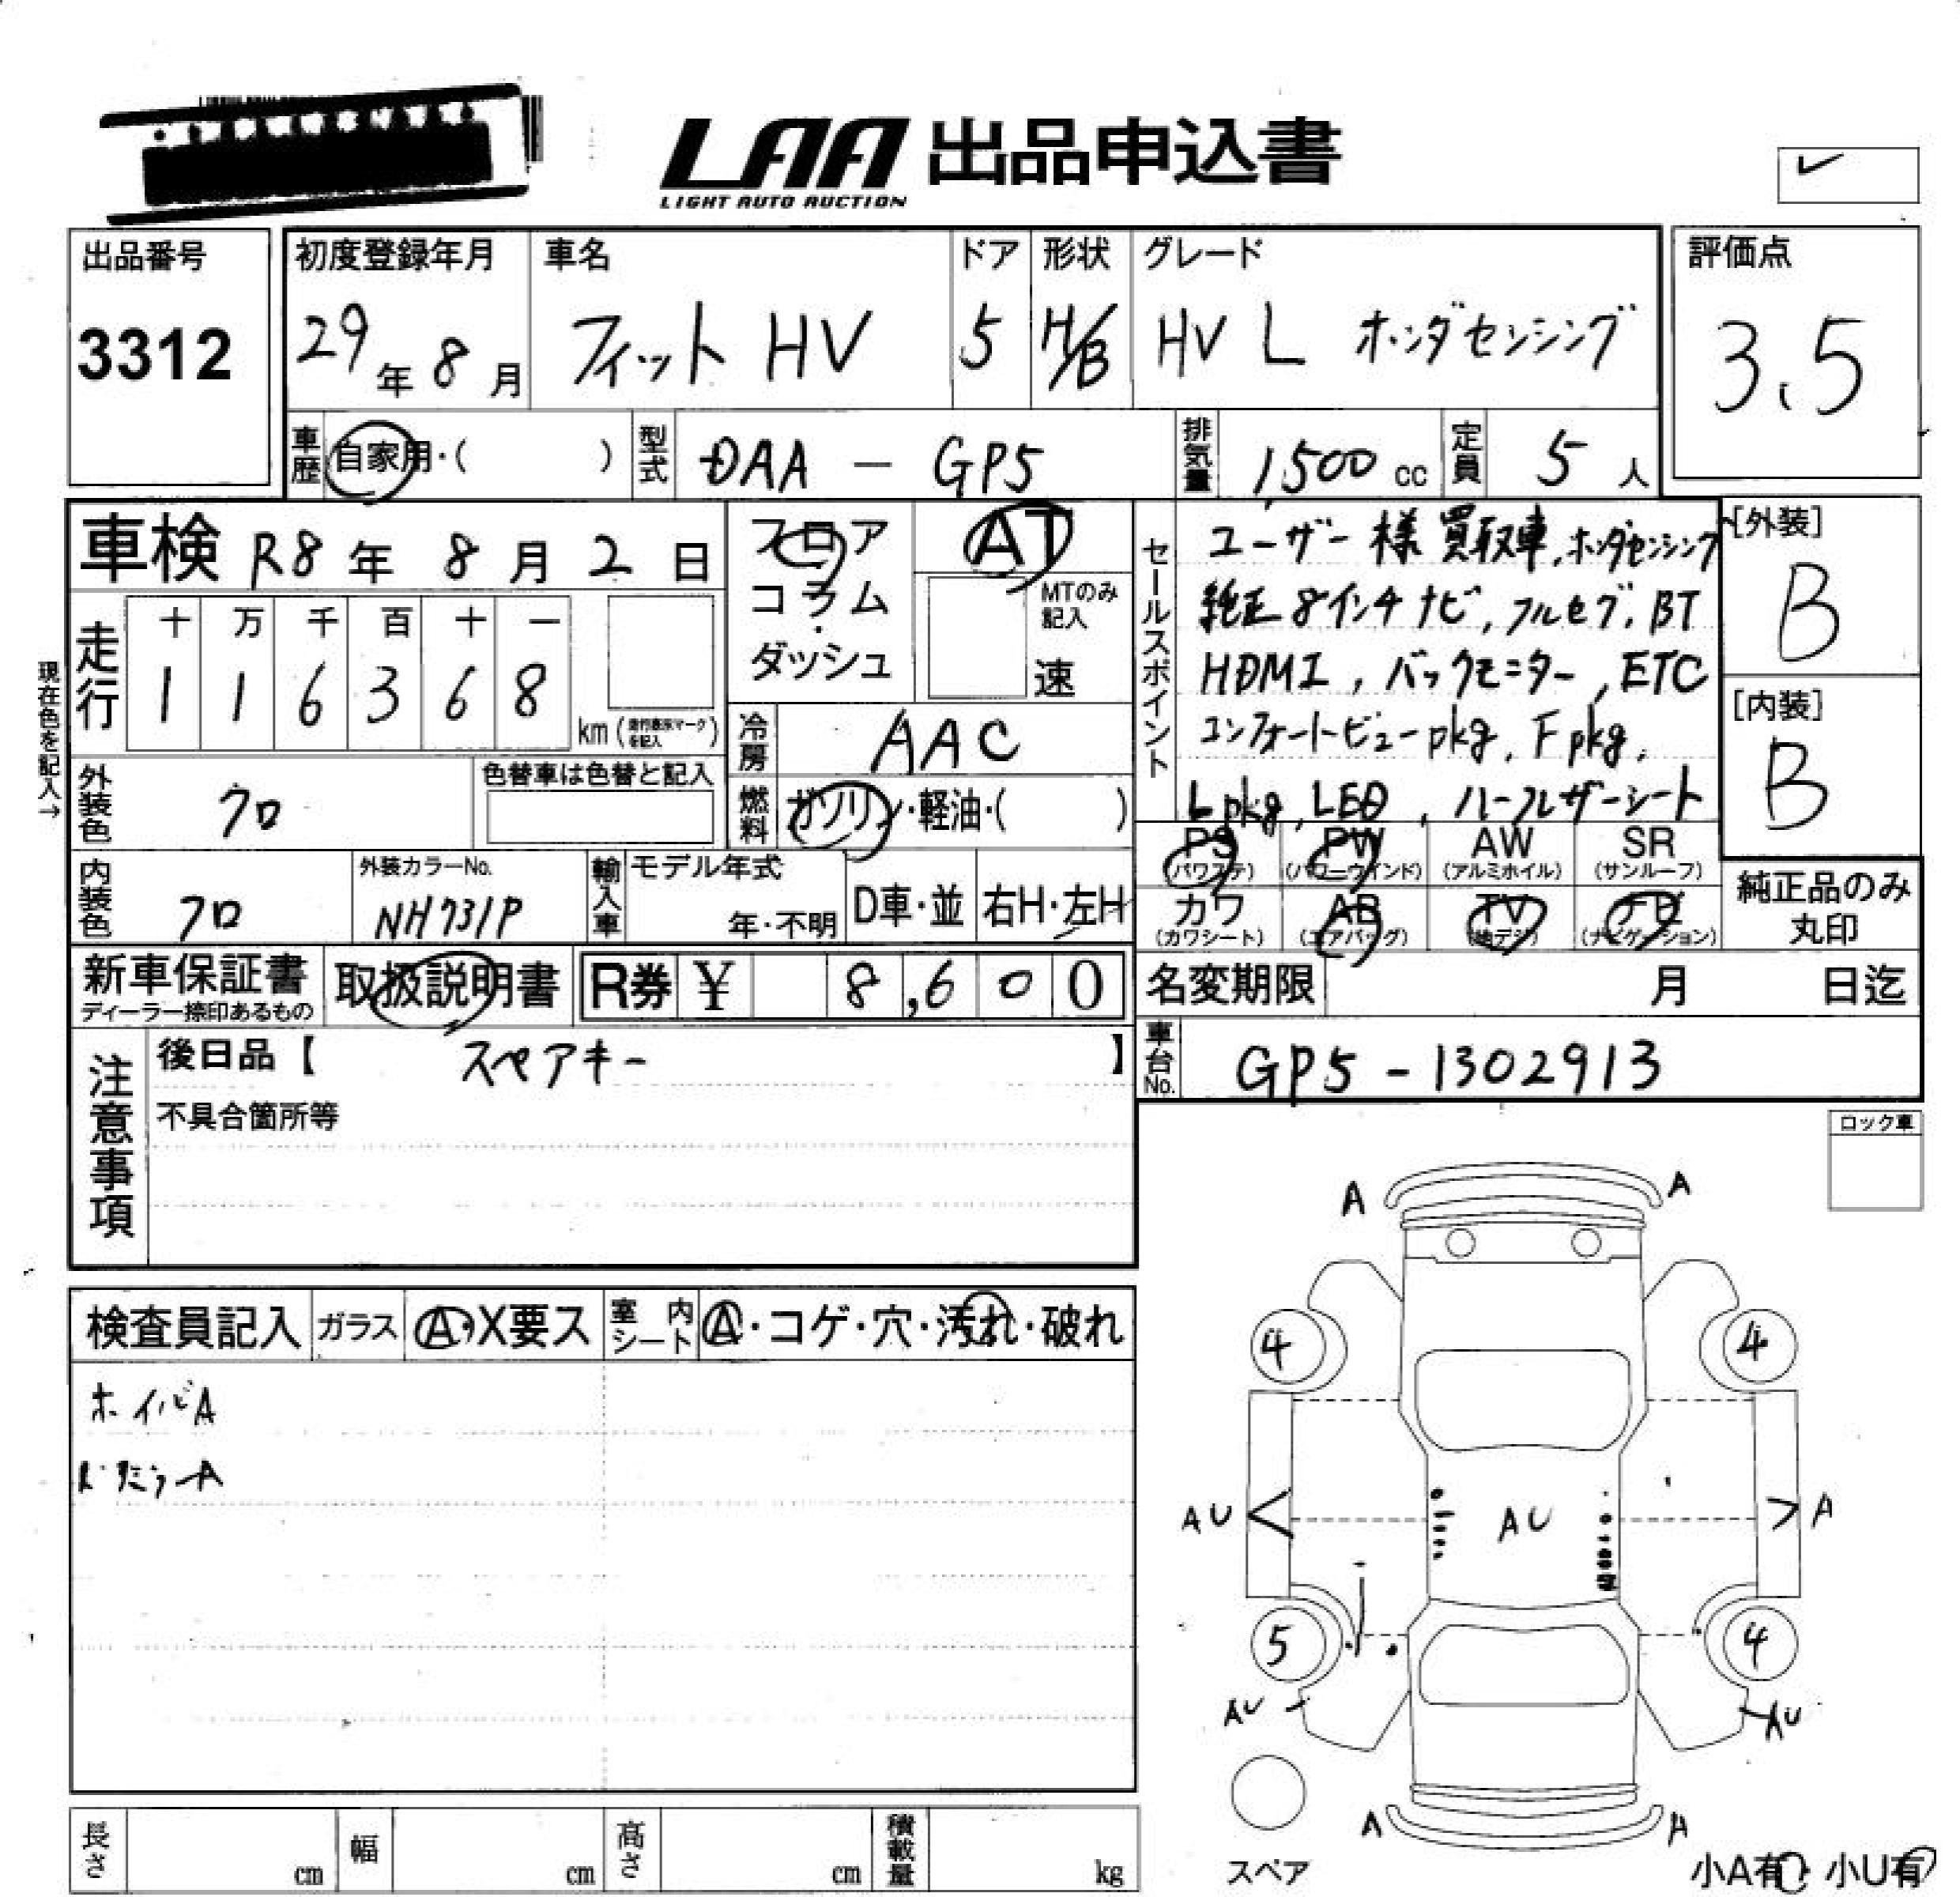 LAA 出品申込書
LIGHT AUTO AUCTION
出品番号
3312
初度登録年月
29年8月
車名
フィット HV
ドア
5
形状
H/B
グレード
HV L ホンダセンシング
評価点
3.5
車歴
自家用・( )
型式
DAA - GP5
排気量
1,500 cc
定員
5 人
車検 R8年 8月 2日
フロア
コラム
・
ダッシュ
AT
MTのみ
記入
速
セールスポイント
ユーザー様買取車,ホンダセンシング
純正8インチナビ,フルセグ,BT
HDMI,バックモニター,ETC
コンフォートビューpkg,Fpkg,
Lpkg,LED,ハーフレザーシート
[外装]
B
[内装]
B
現在色を記入→
走行
十 万 千 百 十 一
1 1 6 3 6 8
km(走行表示マークを記入)
冷房
AAC
外装色
クロ
色替車は色替と記入
燃料
ガソリン・軽油・( )
PS
(パワステ)
PW
(パワーウインド)
AW
(アルミホイル)
SR
(サンルーフ)
内装色
クロ
外装カラーNo.
NH731P
輸入車
モデル年式
年・不明
D車・並
右H・左H
カワ
(カワシート)
AB
(エアバッグ)
TV
(地デジ)
(ナビゲーション)
純正品のみ
丸印
新車保証書
ディーラー捺印あるもの
取扱説明書
R券 ¥ 8,600
名変期限 月 日迄
注意事項
後日品【 スペアキー 】
不具合箇所等
車台No.
GP5-1302913
ロック車
検査員記入
ガラス
A・X要ス
室内シート
A・コゲ・穴・汚れ・破れ
A
A
A A
4 4
AU AU A
5 4
AU AU
A A
スペア
小A有・小U有
長さ cm
幅 cm
高さ cm
積載量 kg